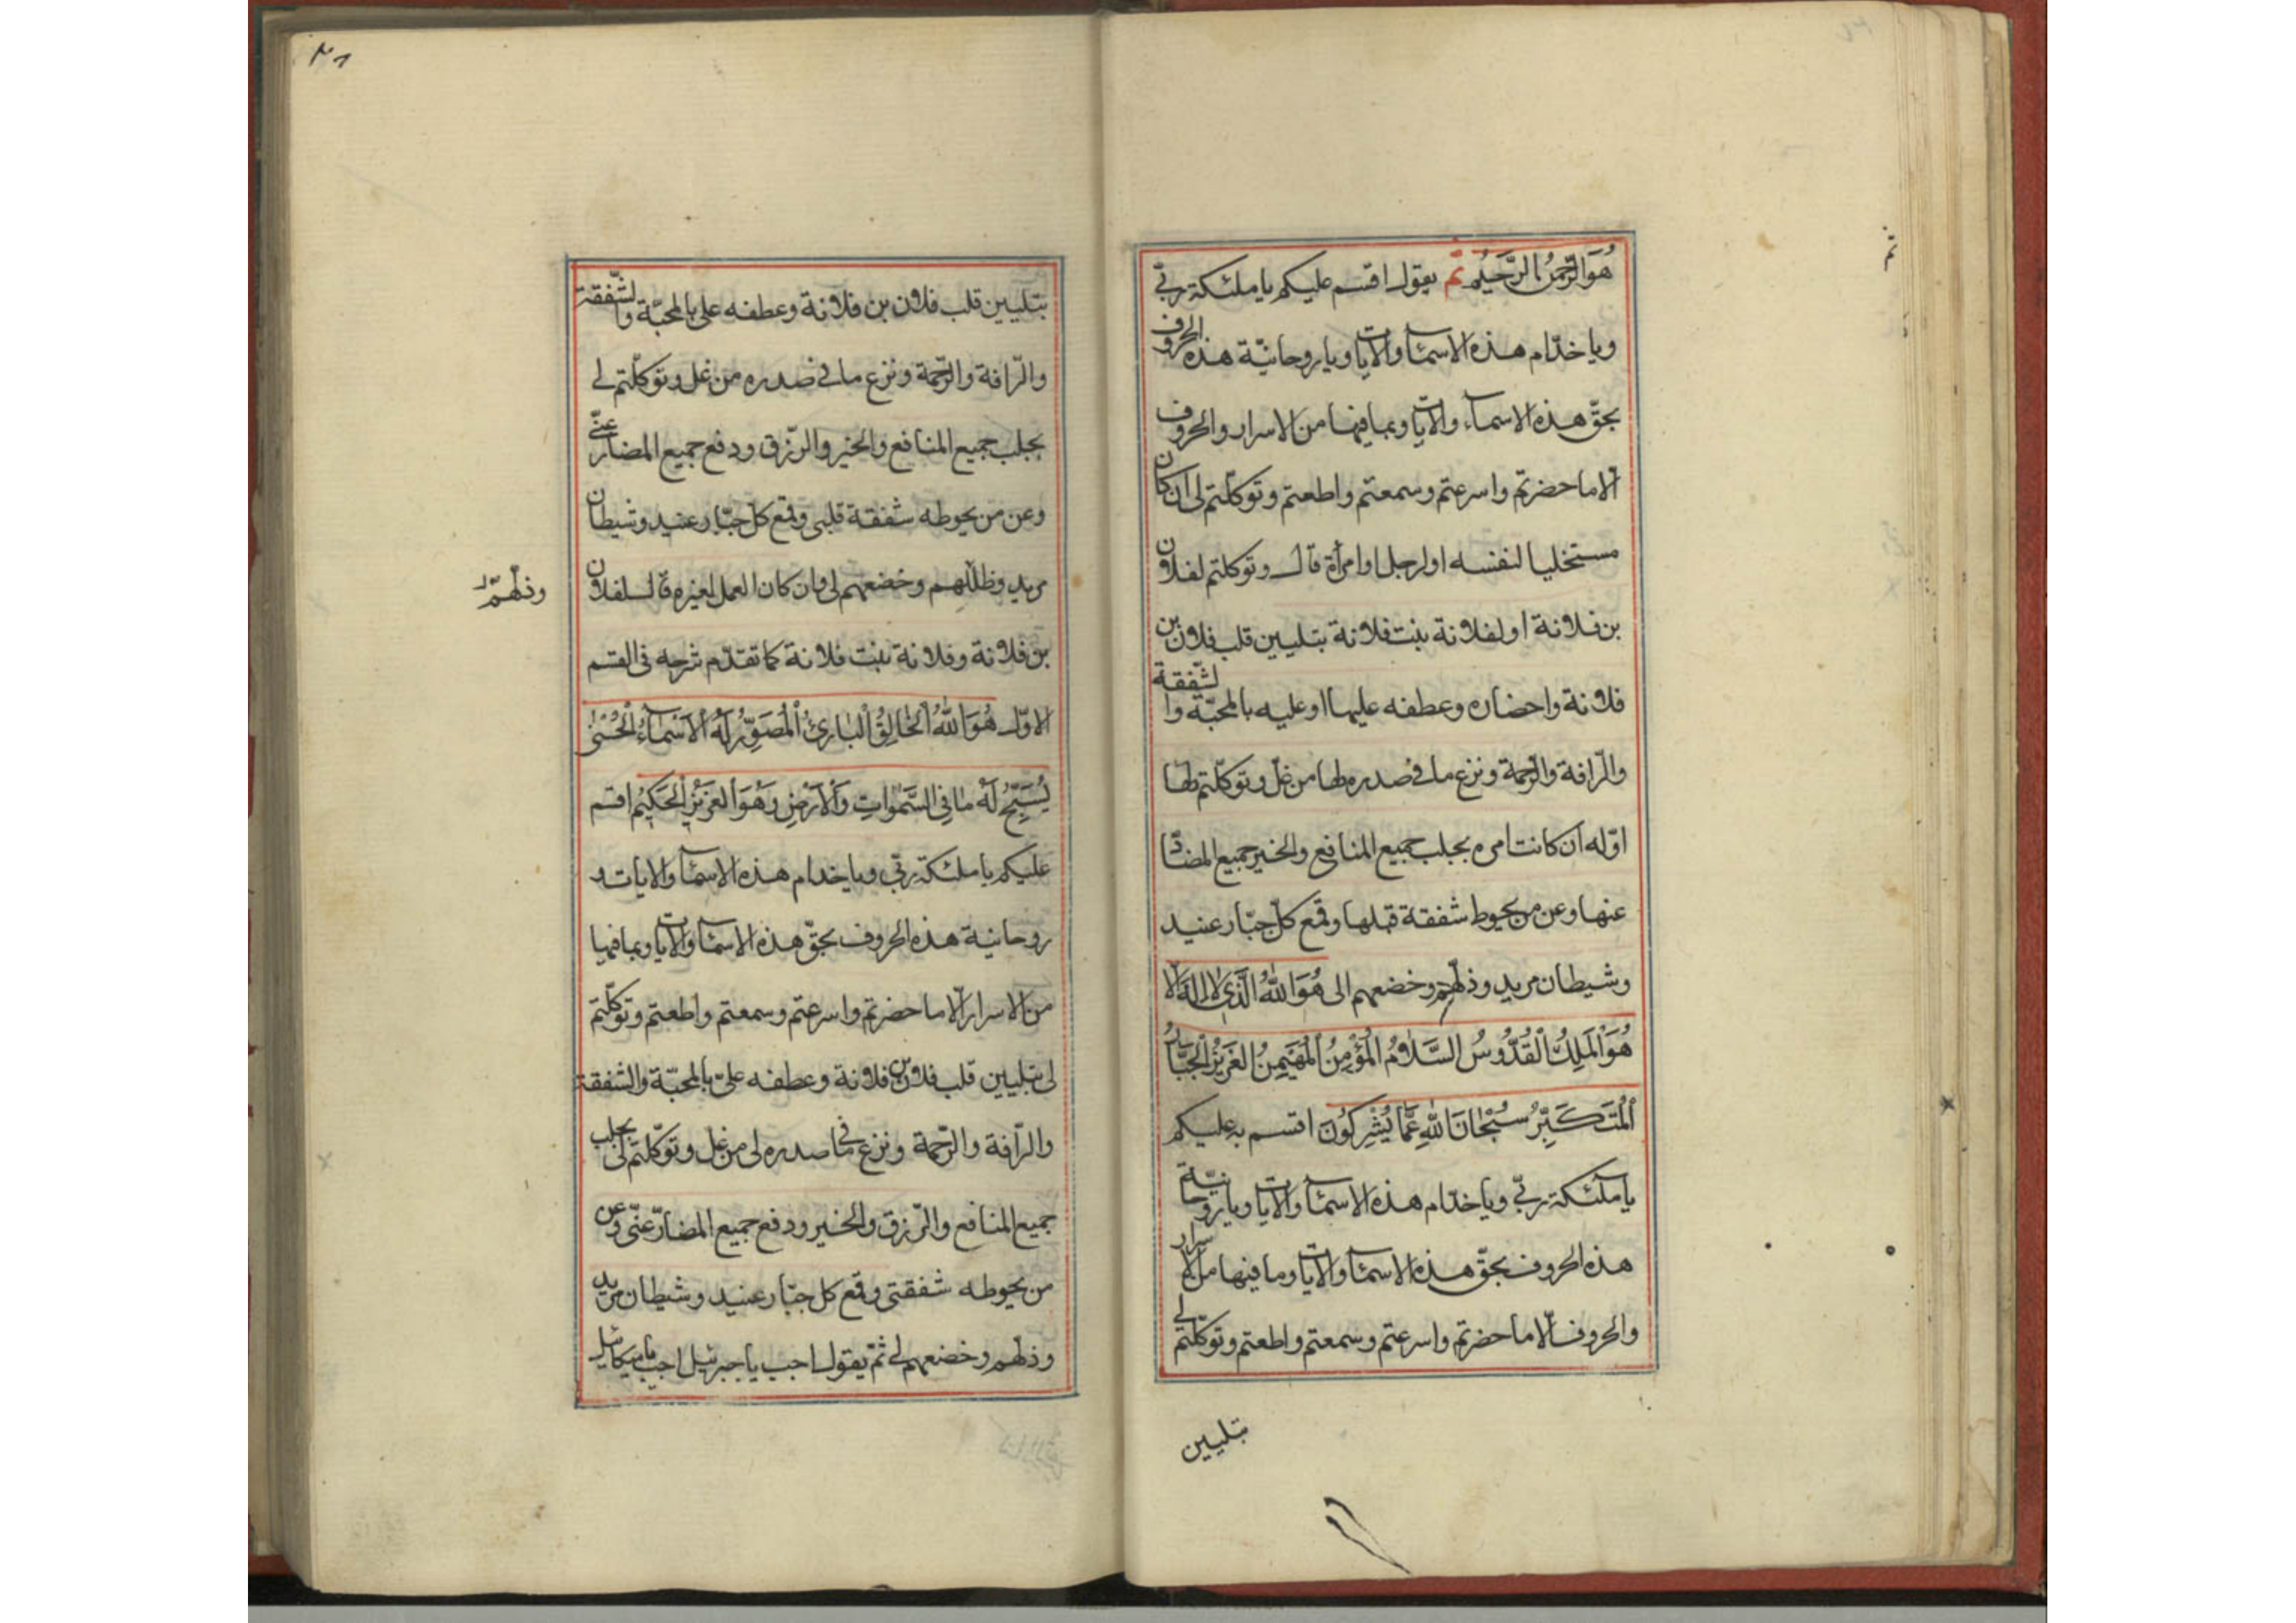 هُوَ الرَّحْمٰنُ الرَّحِيمُ ثمّ يقول اقسم عليكم يا ملئكة ربّي
ويا خدّام هذه الاسمآ والايات ويا روحانيّة هذه الحروف
بحقّ هذه الاسماء والايات وبما فيها من الاسرار والحروف
الّا ما حضرتم واسرعتم وسمعتم واطعتم وتوكّلتم لى ان كان
مستخليا لنفسه او لرجل او امرأة قال وتوكلتم لفلان
بن فلانة او لفلانة بنت فلانة بتليين قلب فلان بن
فلانة واحضاره وعطفه عليها او عليه بالمحبّة والشّفقة
والرّافة والرّحمة ونزع ما فى صدره لها من غلّ وتوكّلتم لها
اوله ان كانت امره بجلب جميع المنافع والخير جميع المضارّ
عنها وعن من يحوط شفقة قبلها وقمع كلّ جبّار عنيد
وشيطان مريد وذلّهم وخضعهم الى هُوَ اللّٰهُ الَّذِى لَا اِلٰهَ اِلَّا
هُوَ الْمَلِكُ الْقُدُّوسُ السَّلَامُ الْمُؤْمِنُ الْمُهَيْمِنُ الْعَزِيزُ الْجَبَّارُ
الْمُتَكَبِّرُ سُبْحَانَ اللّٰهِ عَمَّا يُشْرِكُونَ اقسم به عليكم
يا ملئكة ربّي ويا خدّام هذه الاسمآ والايات ويا روحانيّة
هذه الحروف بحقّ هذه الاسمآ والايات وما فيها من الاسرار
والحروف الّا ما حضرتم واسرعتم وسمعتم واطعتم وتوكّلتم لى
بتليين
بتليين قلب فلان بن فلانة وعطفه على بالمحبّة والشّفقة
والرّافة والرّحمة ونزع ما فى صدره من غل وتوكّلتم لى
بجلب جميع المنافع والخير والرّزق ودفع جميع المضارّ عنّى
وعن من يحوطه شفقة قلبى وقمع كلّ جبّار عنيد وشيطان
مريد وظلّلهم وخضعهم لى وان كان العمل لغيره قال لفلان
وذلّهم
بن فلانة وفلانة بنت فلانة كما تقدّم شرحه فى القسم
الاوّل هُوَ اللّٰهُ الْخَالِقُ الْبَارِئُ الْمُصَوِّرُ لَهُ الْاَسْمَآءُ الْحُسْنٰى
يُسَبِّحُ لَهُ مَا فِى السَّمٰوَاتِ وَالْاَرْضِ وَهُوَ الْعَزِيْزُ الْحَكِيْمُ اقسم
عليكم يا ملئكة ربّي ويا خدام هذه الاسمآ والايات و
روحانية هذه الحروف بحقّ هذه الاسمآ والايات وبما فيها
من الاسرار الّا ما حضرتم واسرعتم وسمعتم واطعتم وتوكّلتم
لى بتليين قلب فلان بن فلانة وعطفه علىّ بالمحبّة والشفقة
والرّافة والرّحمة ونزع ما فى صدره لى من غل وتوكّلتم لى بجلب
جميع المنافع والرّزق والخير ودفع جميع المضارّ عنّى وعن
من يحوطه شفقتى وقمع كل جبّار عنيد وشيطان مريد
وذلّهم وخضعهم لى ثمّ يقول اجب يا جبرئيل اجب يا ميكائيل